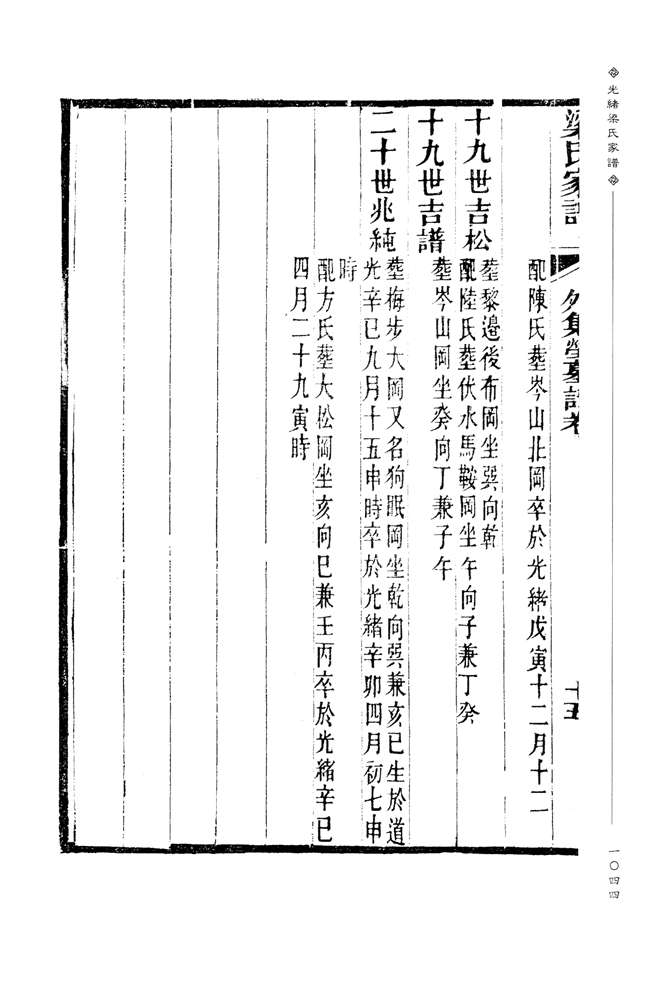 光緒梁氏家譜
一〇四四
梁氏家譜 外集塋墓譜卷 十五
配陳氏塟岑山北岡卒於光緒戊寅十二月十二
十九世吉松塟黎邉後布岡坐巽向乾
配陸氏塟伏水馬鞍岡坐午向子兼丁癸
十九世吉譜塟岑山岡坐癸向丁兼子午
二十世兆純塟梅步大岡又名狗眠岡坐乾向巽兼亥巳生於道
光辛巳九月十五申時卒於光緒辛卯四月初七申
時
配方氏塟大松岡坐亥向巳兼壬丙卒於光緒辛巳
四月二十九寅時